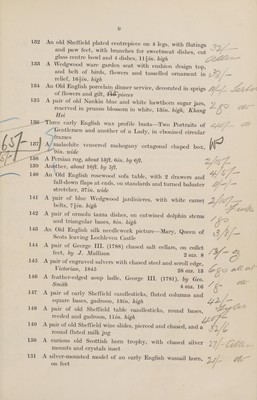 9
132 An old Sheffield plated centrepiece on 4 legs, with flutings
and paw feet, with branches for sweetmeat dishes, cut
glass centre bowl and 4 dishes, 11½in. high
133 A Wedgwood ware garden seat with cushion design top,
and belt of birds, flowers and tasselled ornament in
relief, 16½in. high
134 An Old English porcelain dinner service, decorated in sprigs
of flowers and gift, pieces
135 A pair of old Nankin blue and white hawthorn sugar jars,
reserved in prunus blossom in white, 13in. high, Khang
Hei
136 Three early English wax profile busts—Two Portraits of
Gentlemen and another of a Lady, in ebonised circular
frames
137 A malachite veneered mahogany octagonal shaped box,
9in. wide
138 A Persian rug, about
139 Another, about
140 An Old English rosewood sofa table, with 2 drawers and
fall-down flaps at ends, on standards and turned baluster
stretcher, 37in. wide
141 A pair of blue Wedgwood jardinieres, with white camei
belts, 7½in. high
142 A pair of ormolu tazza dishes, on entwined dolphin stems
and triangular bases, 8in. high
143 An Old English silk needlework picture—Mary, Queen of
Scots leaving Lochlevin Castle
144 A pair of George III. (1788) chased salt cellars, on collet
feet, by J. Mallison 2 ozs. 8
145 A pair of engraved salvers with chased steel and scroll edge,
Victorian, 1845 26 ozs. 18
146 A feather-edged soup ladle, George III. (1781), by Geo.
Smith 4 ozs. 16
147 A pair of early Sheffield candlesticks, fluted columns and
square bases, gadroon, 13in. high
148 A pair of old Sheffield table candlesticks, round bases,
reeded and gadroon, 11in. high
149 A pair of old Sheffield wine slides, pierced and chased, and a
round fluted milk jug
150 A curious old Scottish horn trophy, with chased silver
mounts and crystals inset
151 A silver-mounted model of an early English wassail horn,
on feet